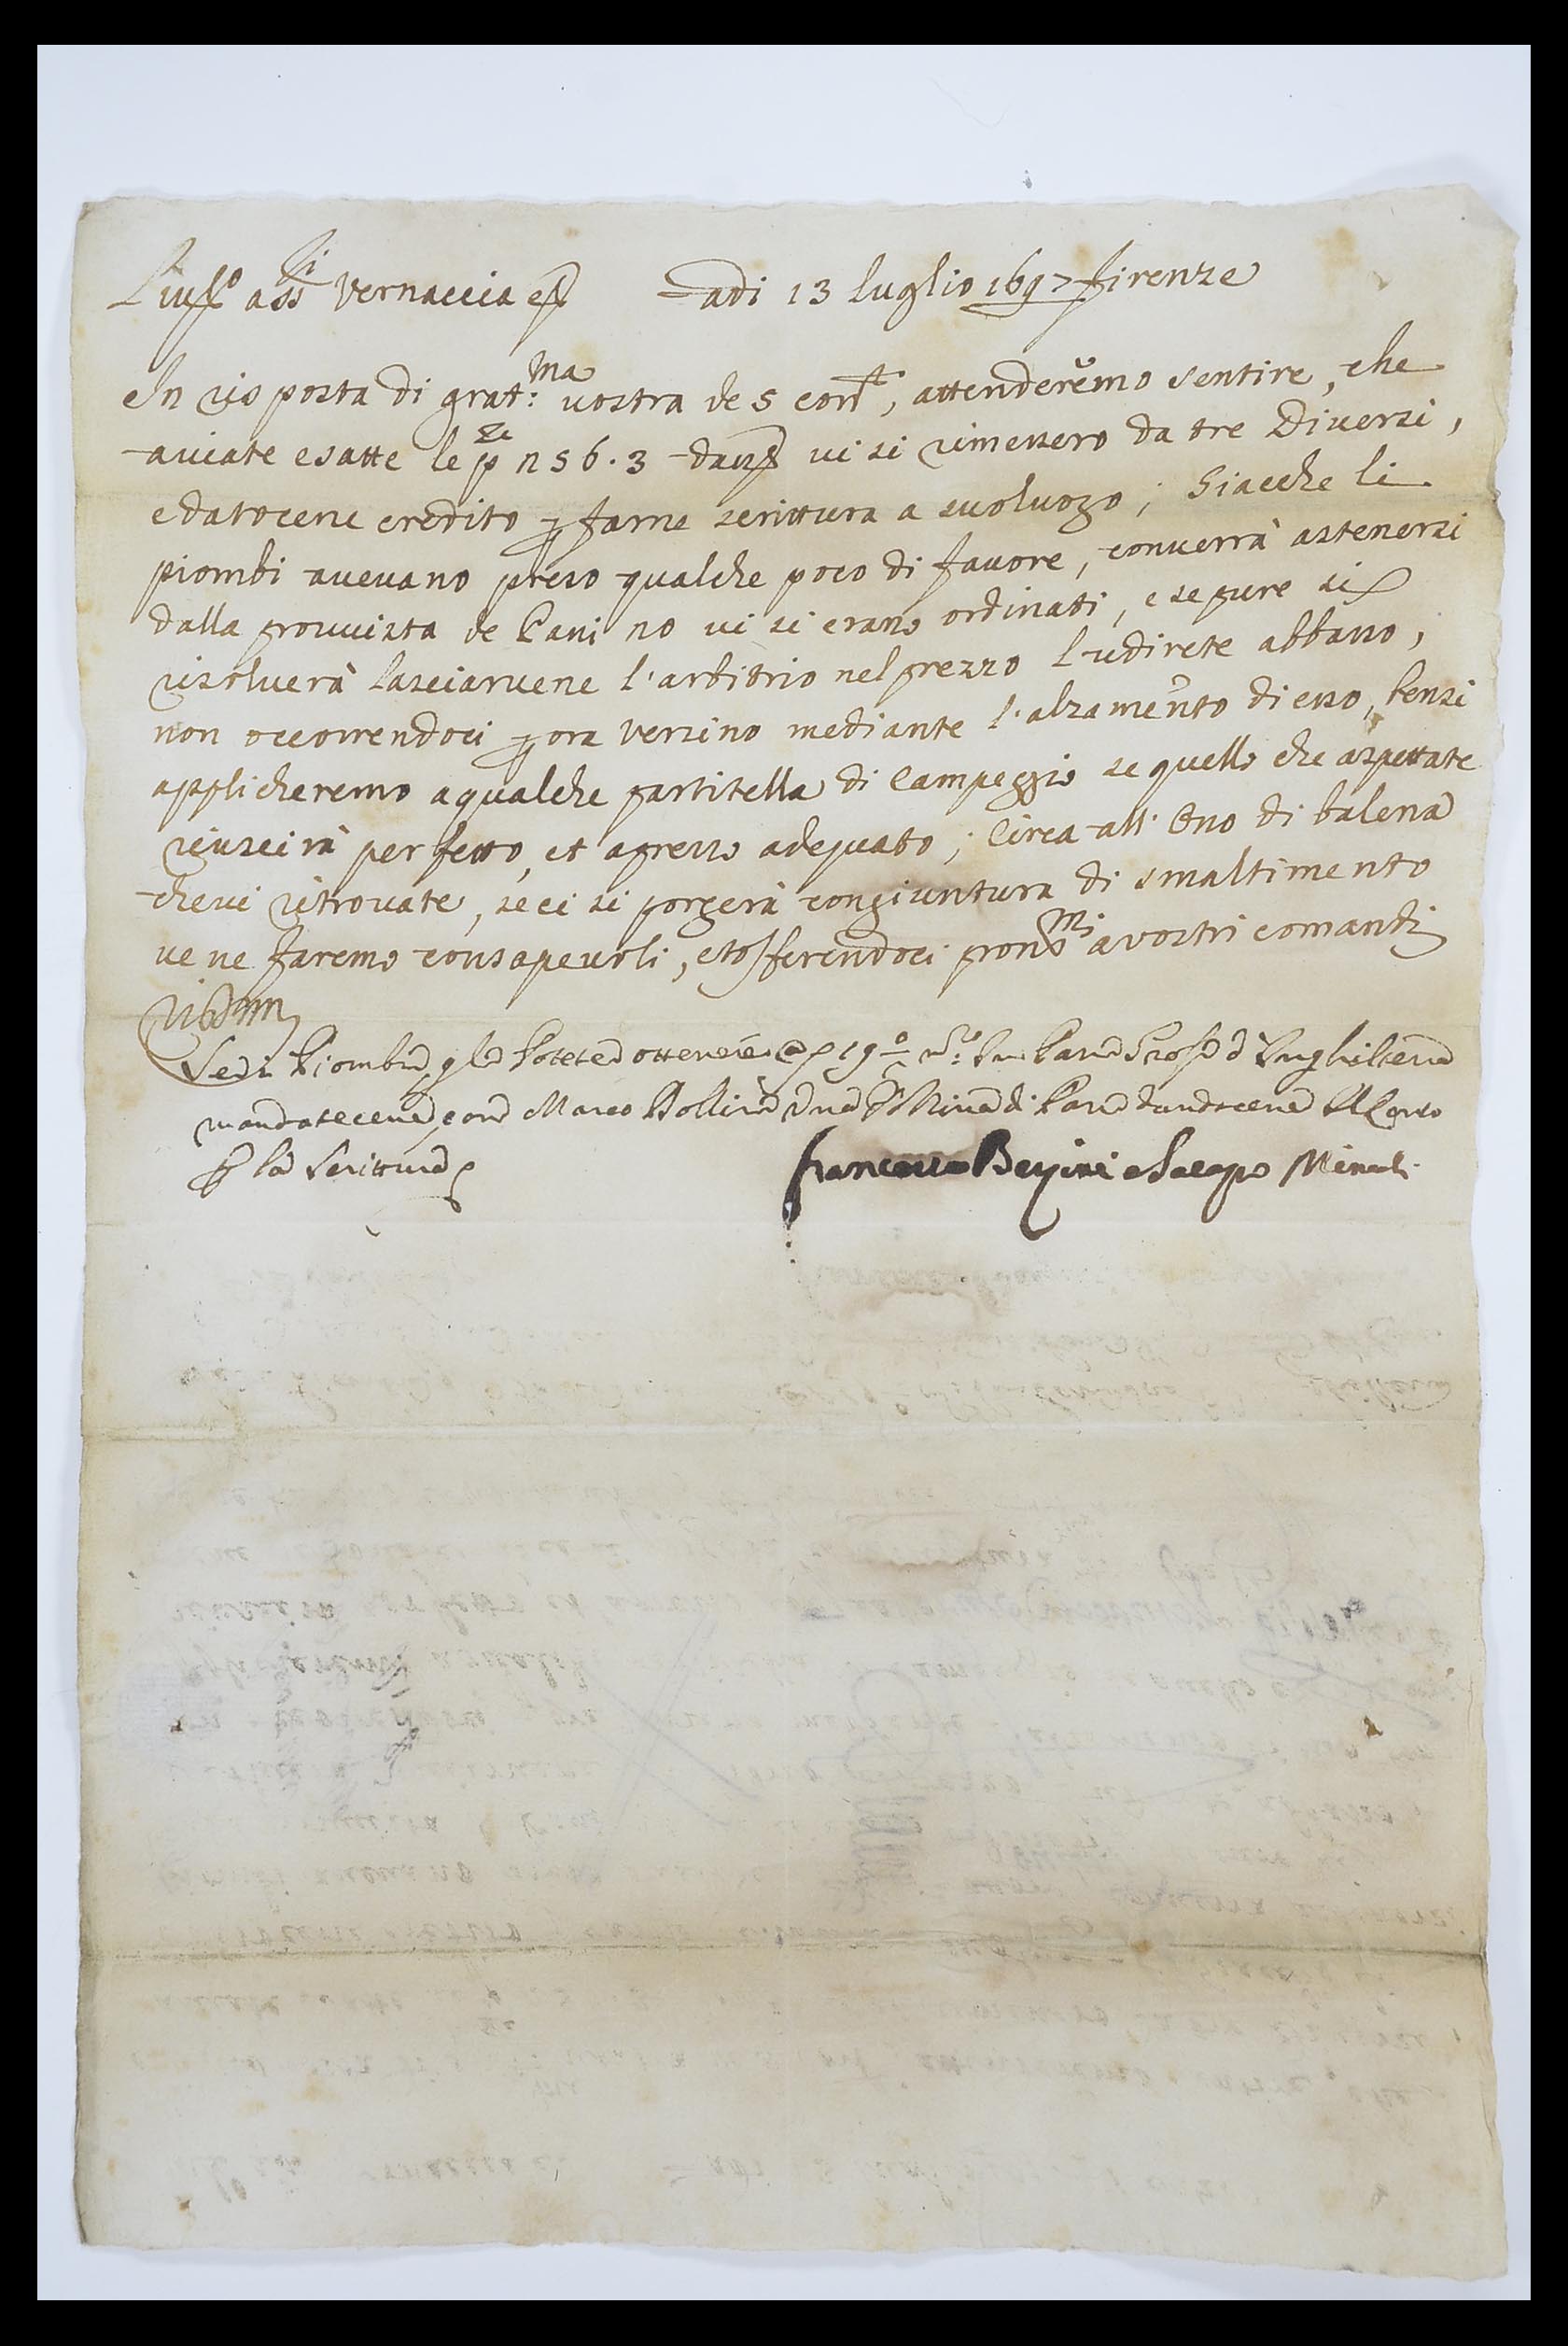 adi 13 luglio 1697 firenze
Vernaccia
In risposta di grat:ma vostra de 5 corrt, attenderemo sentire, che
aviate esatte le pze n 56.3 vi si rimessero da tre Diversi,
e datocene credito p farne scrittura a suo luogo; Giacche li
piombi avevano preso qualche poco di favore, converrà astenersi
dalla provvista de Pani no vi si erano ordinati, e se pure si
risolverà lasciarvene l'arbitrio nel prezzo l'udirete abbasso,
non occorrendoci p ora verzino mediante l'alzamento di esso, bensi
applicheremo a qualche partitella di Campeggio se quello che aspettate
riuscirà perfetto, et a prezzo adequato; Circa all' Oño di balena
che vi ritrovate, se ci si porgerà congiuntura di smaltimento
ve ne faremo consapevoli, et offerendoci prontmi a vostri comandi
Se di Piombi
mandatecene con Marco dandocene
la Scrittura
Francesco e Jacopo